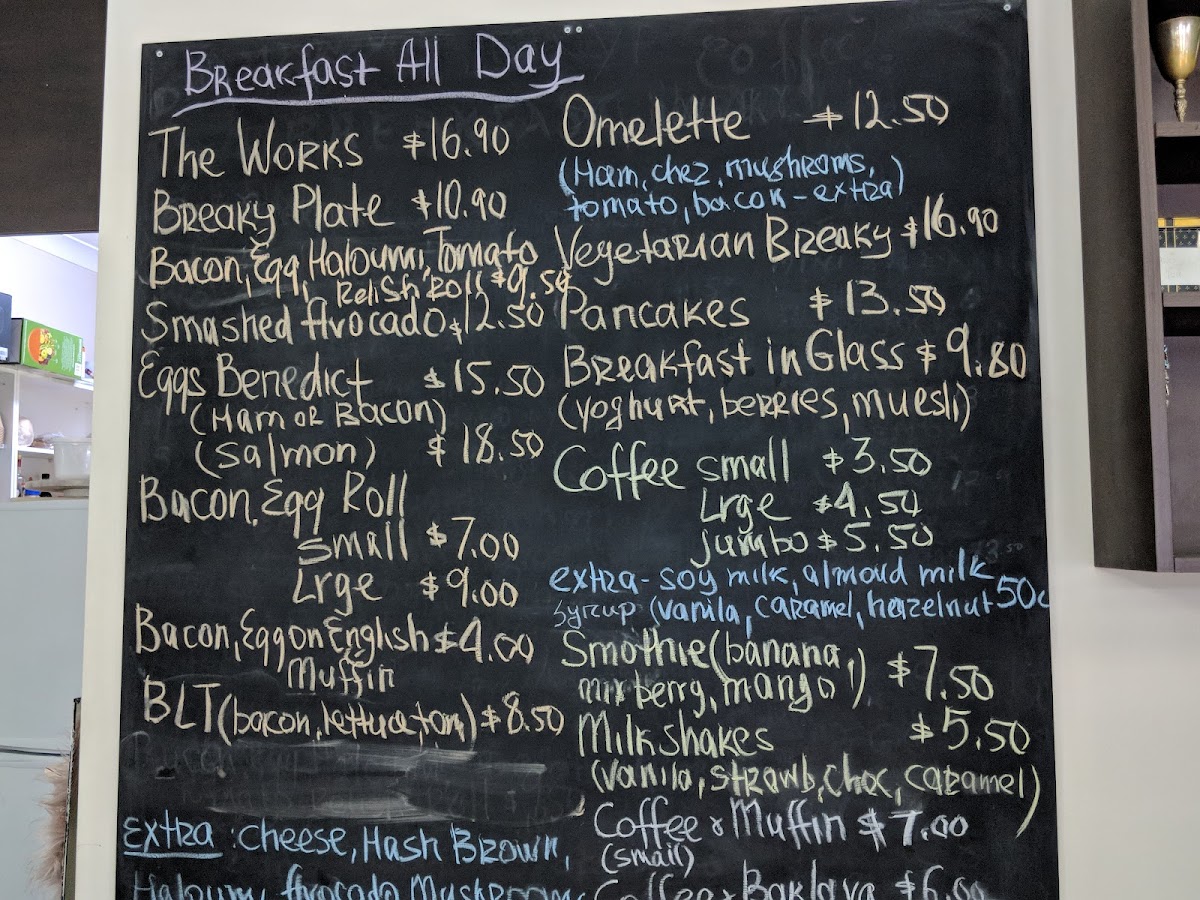 Breakfast All Day
The Works $16.90
Breaky Plate $10.90
Bacon, Egg, Haloumi, Tomato
Relish Roll $9.50
Smashed Avocado $12.50
Eggs Benedict $15.50
(Ham or Bacon)
(Salmon) $18.50
Bacon, Egg Roll
small $7.00
Lrge $9.00
Bacon, Egg on English $4.00
Muffin
BLT (bacon, lettuce, tom) $8.50
Extra : Cheese, Hash Brown,
Haloumi, Avocado, Mushroom
Omelette $12.50
(Ham, chez, mushroms,
tomato, bacon - extra)
Vegetarian Breaky $16.90
Pancakes $13.50
Breakfast in Glass $9.80
(yoghurt, berries, muesli)
Coffee small $3.50
Lrge $4.50
jumbo $5.50
extra - soy milk, almond milk
syrup (vanila, caramel, hazelnut 50c
Smothie (banana,
mixberry, mango) $7.50
Milkshakes $5.50
(vanila, strawb, choc, caramel)
Coffee & Muffin $7.00
(small)
Coffee & Baklava $6.00